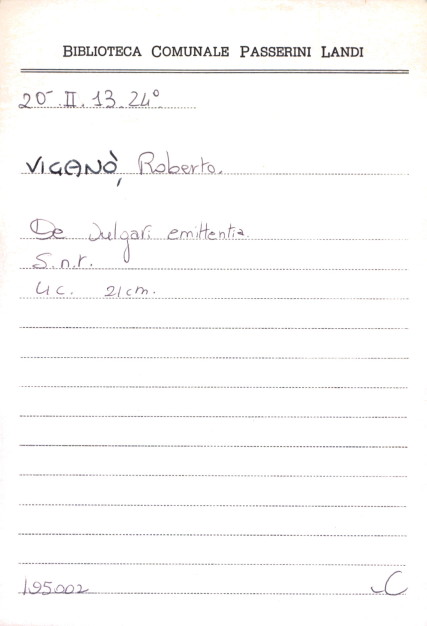 BIBLIOTECA COMUNALE PASSERINI LANDI
20-.II.13.24°
VIGANÒ, Roberto.
De vulgari emittentia.
S.n.r.
4 c. 21 cm.
195002 C